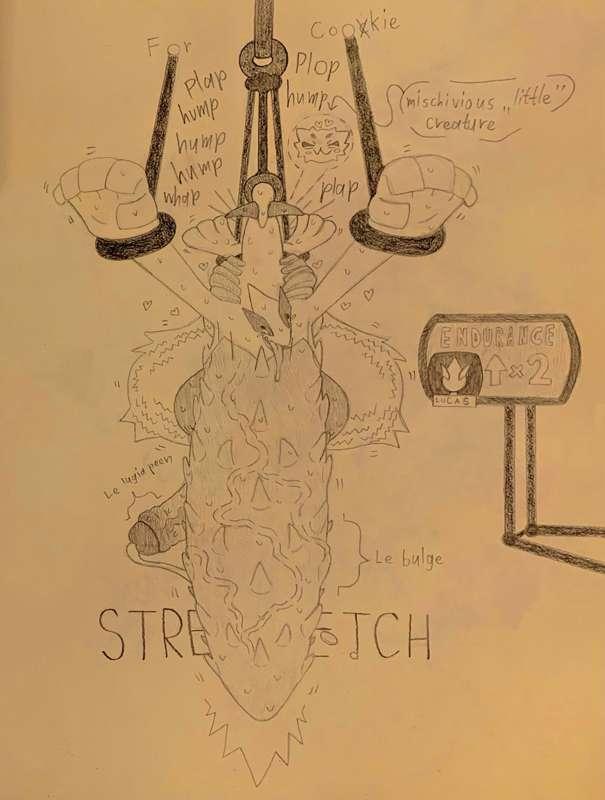 For
Cookie
Plap
hump
hump
hump
whap
Plop
hump
plap
mischivious „little”
creature
ENDURANCE
↑×2
LUCAS
Le lugia peen
Le bulge
STRE TCH